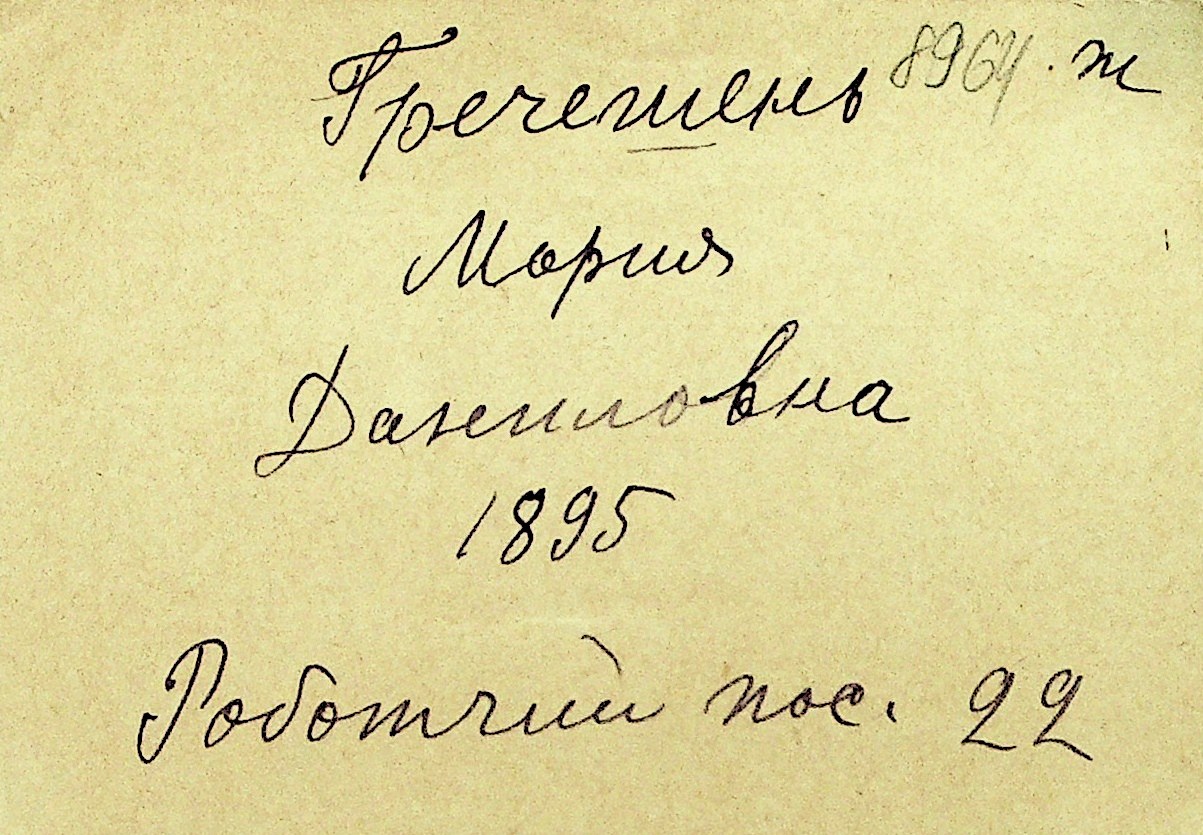 Гречешень 8964 ж
Мария
Даниловна
1895
Роботчий пос. 22